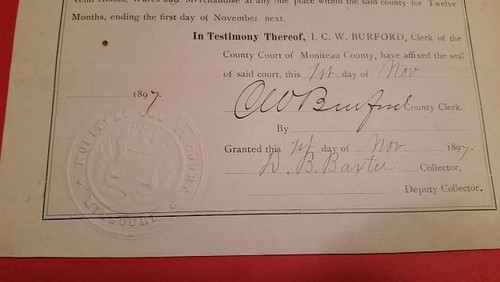 Vend Goods, Wares and Merchandise at any one place within the said county for Twelve
Months, ending the first day of November next.
In Testimony Thereof, I. C. W. BURFORD, Clerk of the
County Court of Moniteau County, have affixed the seal
of said court, this 1st day of Nov
1897.
CW Burford County Clerk.
By
Granted this 1st day of Nov 1897.
D. B. Baxter Collector.
Deputy Collector.